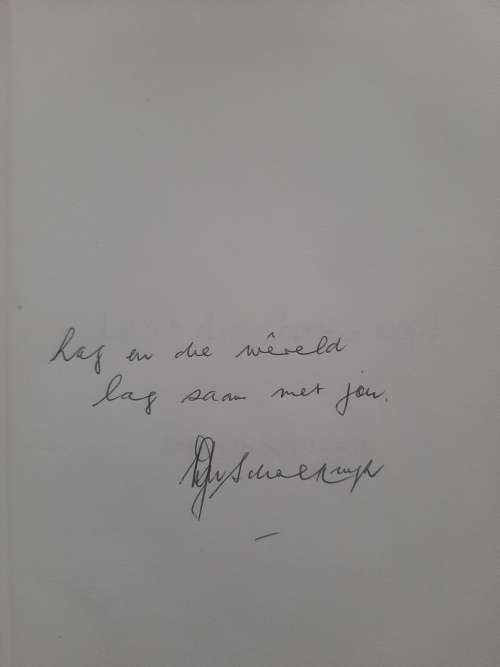 Lag en die wêreld
lag saam met jou.
Schalkwyk